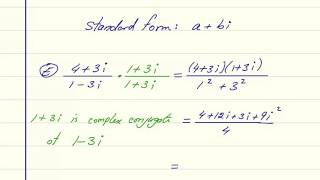 Standard form: a + bi
E (4+3i)/(1-3i) · (1+3i)/(1+3i) = ((4+3i)(1+3i))/(1² + 3²)
1+3i is complex conjugate of 1-3i
= (4+12i+3i+9i²)/4
=